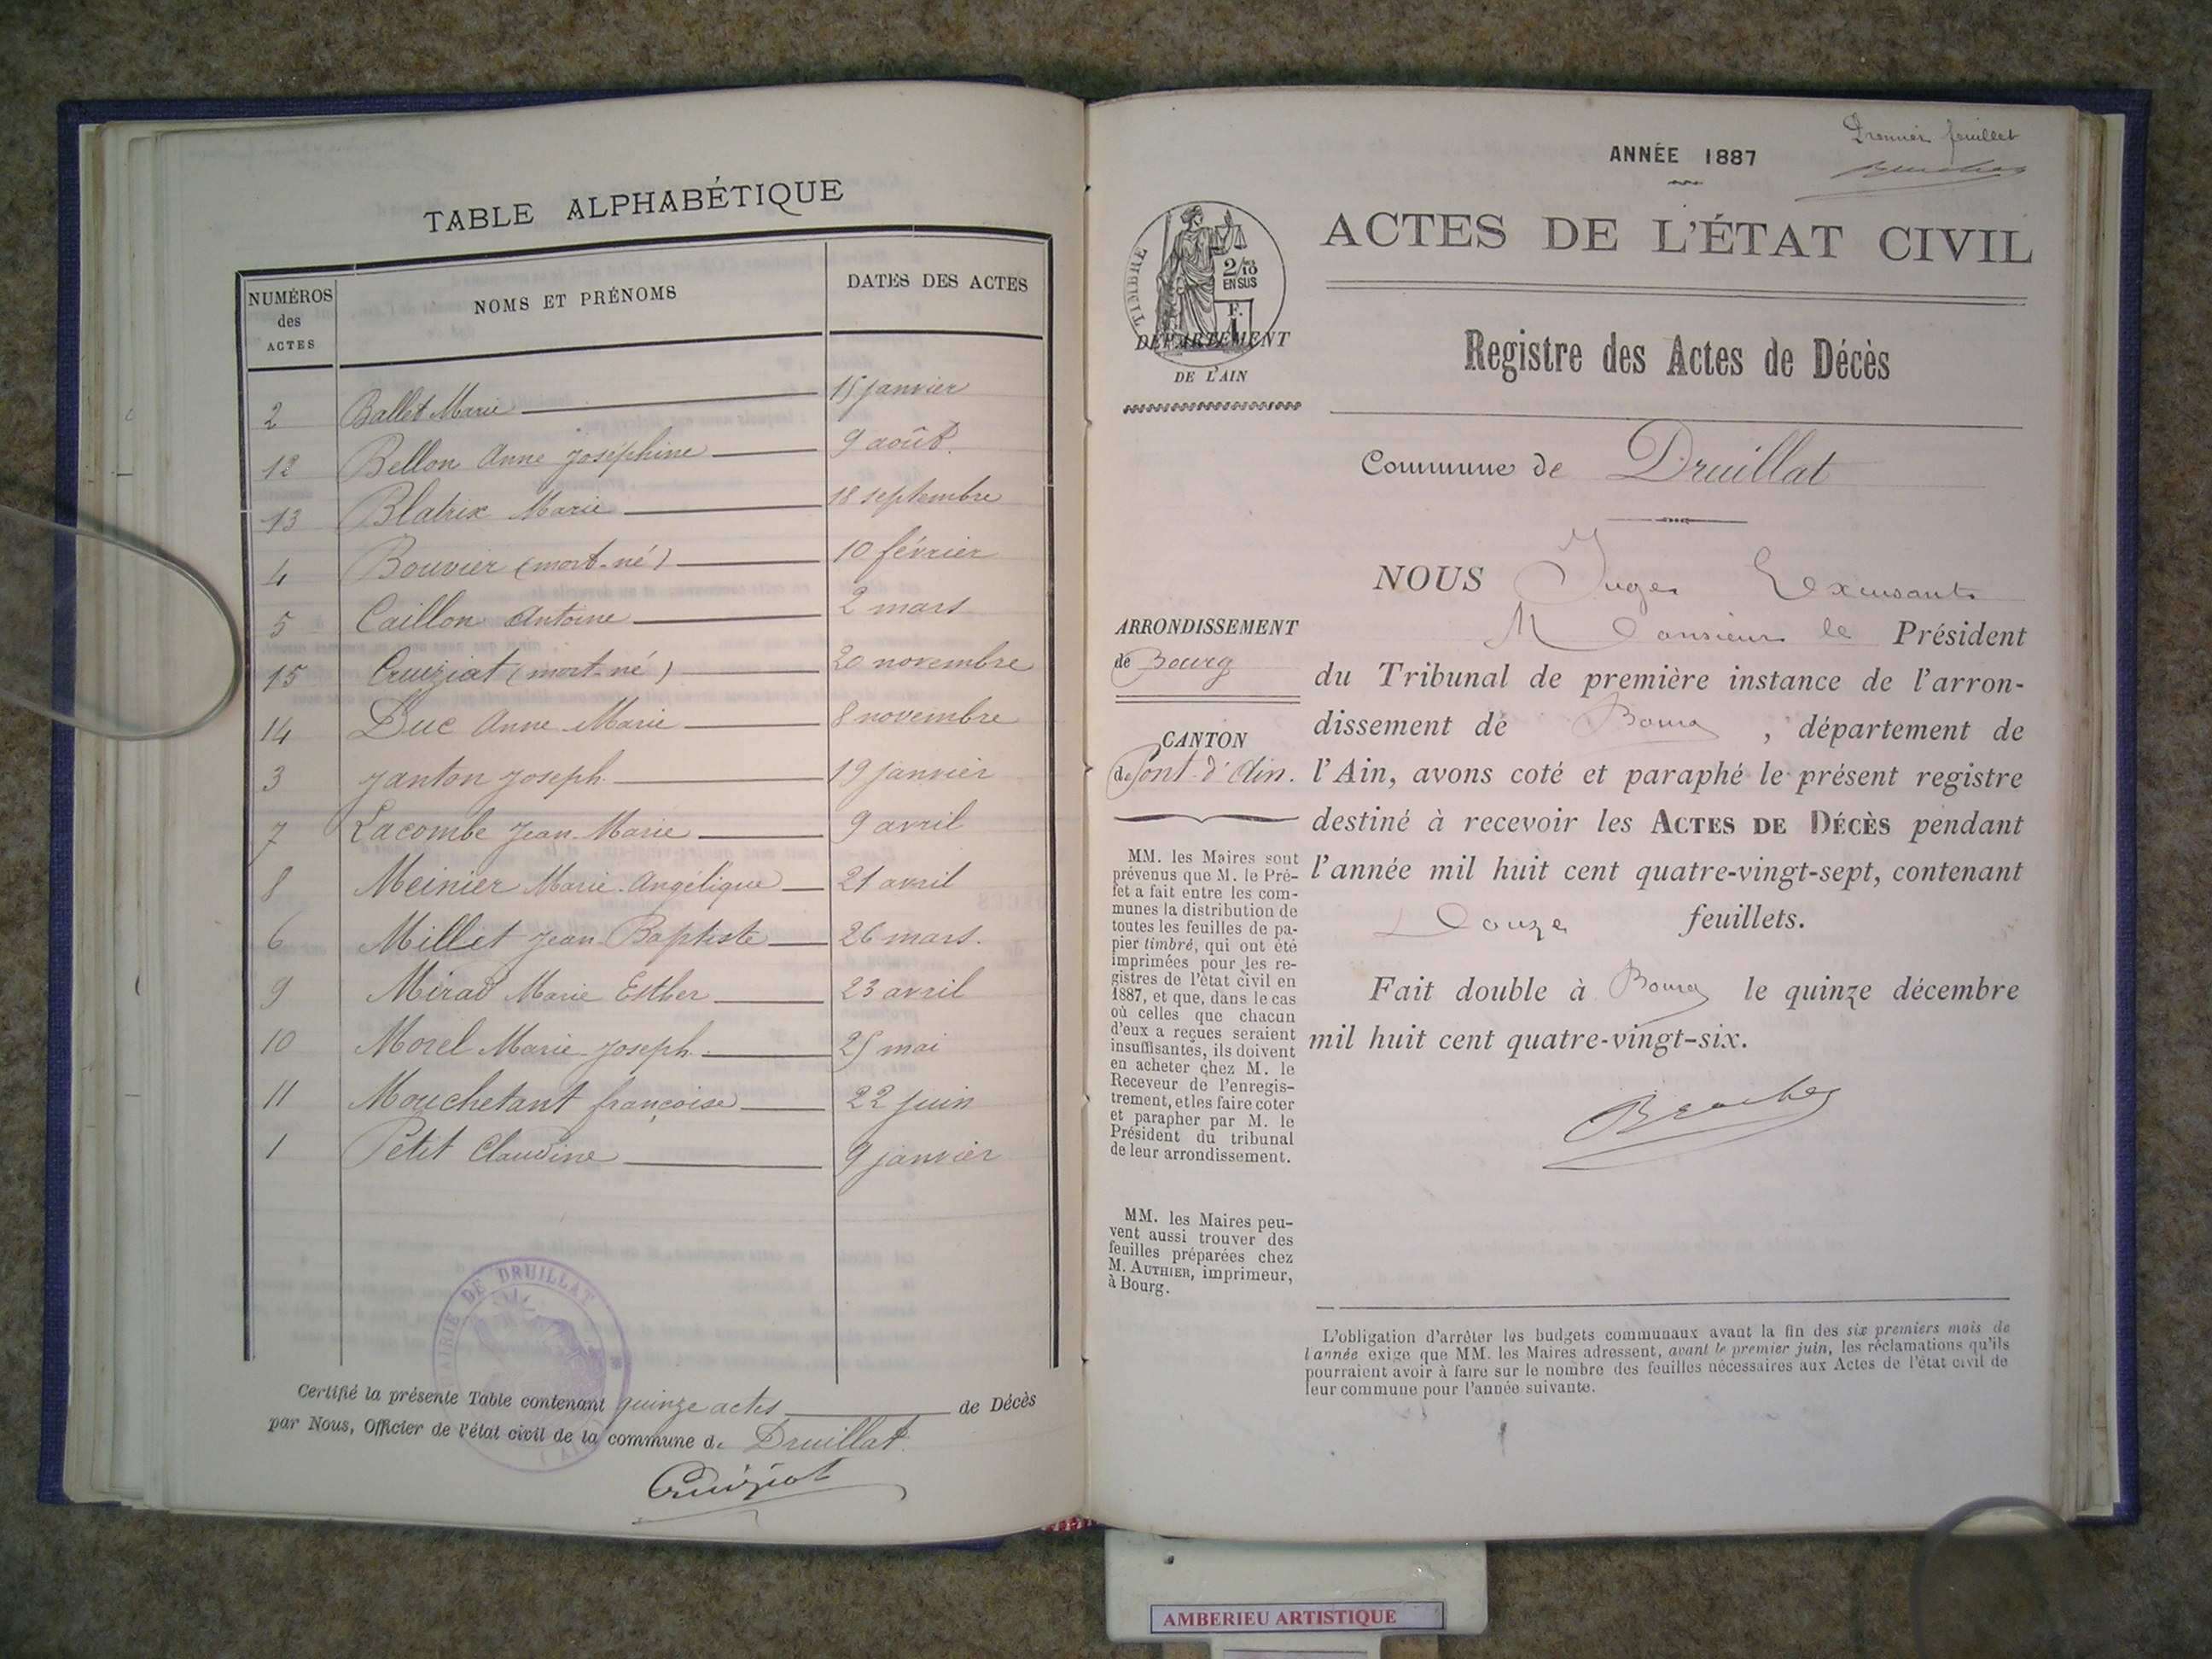 TABLE ALPHABÉTIQUE
NUMÉROS des ACTES NOMS ET PRÉNOMS DATES DES ACTES
2 Ballet Marie 15 janvier
12 Bellon Anne Joséphine 9 août.
13 Blatrix Marie 18 septembre
4 Bouvier (mort-né) 10 février
5 Caillon Antoine 2 mars
15 Cruiziat (mort-né) 20 novembre
14 Duc Anne Marie 8 novembre
3 Janton Joseph 19 janvier
7 Lacombe Jean-Marie 9 avril
8 Meinier Marie-Angélique 21 avril
6 Millet Jean-Baptiste 26 mars.
9 Mirad Marie Esther 23 avril
10 Morel Marie-Joseph 25 mai
11 Mouchetant françoise 22 juin
1 Petit Claudine 9 janvier
MAIRIE DE DRUILLAT
(AIN)
Certifié la présente Table contenant quinze actes de Décès
par Nous, Officier de l'état civil de la commune de Druillat.
Cruiziat
Premier feuillet
ANNÉE 1887
ACTES DE L'ÉTAT CIVIL
TIMBRE
2/10
EN SUS
F.
1
DÉPARTEMENT
DE L'AIN
Registre des Actes de Décès
Commune de Druillat
ARRONDISSEMENT
de Bourg
CANTON
de Pont-d'Ain.
MM. les Maires sont
prévenus que M. le Pré-
fet a fait entre les com-
munes la distribution de
toutes les feuilles de pa-
pier timbré, qui ont été
imprimées pour les re-
gistres de l'état civil en
1887, et que, dans le cas
où celles que chacun
d'eux a reçues seraient
insuffisantes, ils doivent
en acheter chez M. le
Receveur de l'enregis-
trement, et les faire coter
et parapher par M. le
Président du tribunal
de leur arrondissement.
MM. les Maires peu-
vent aussi trouver des
feuilles préparées chez
M. AUTHIER, imprimeur,
à Bourg.
NOUS Juge
Monsieur le Président
du Tribunal de première instance de l'arron-
dissement de Bourg, département de
l'Ain, avons coté et paraphé le présent registre
destiné à recevoir les ACTES DE DÉCÈS pendant
l'année mil huit cent quatre-vingt-sept, contenant
Douze feuillets.
Fait double à Bourg le quinze décembre
mil huit cent quatre-vingt-six.
L'obligation d'arrêter les budgets communaux avant la fin des six premiers mois de
l'année exige que MM. les Maires adressent, avant le premier juin, les réclamations qu'ils
pourraient avoir à faire sur le nombre des feuilles nécessaires aux Actes de l'état civil de
leur commune pour l'année suivante.
AMBERIEU ARTISTIQUE